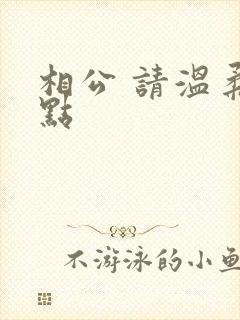 相公 請溫柔
點
不游泳的小魚